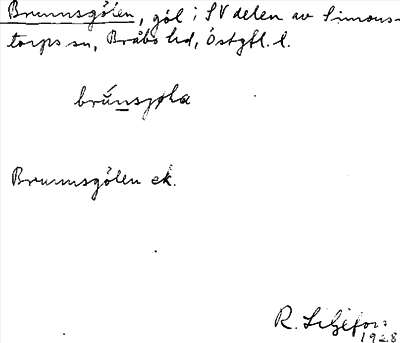 Brunnsgölen, göl i SV delen av Simons-
torps sn, Bråbo hd, Östgtl. l.
Brunnsgölen ek.
R. Liljefors
1928